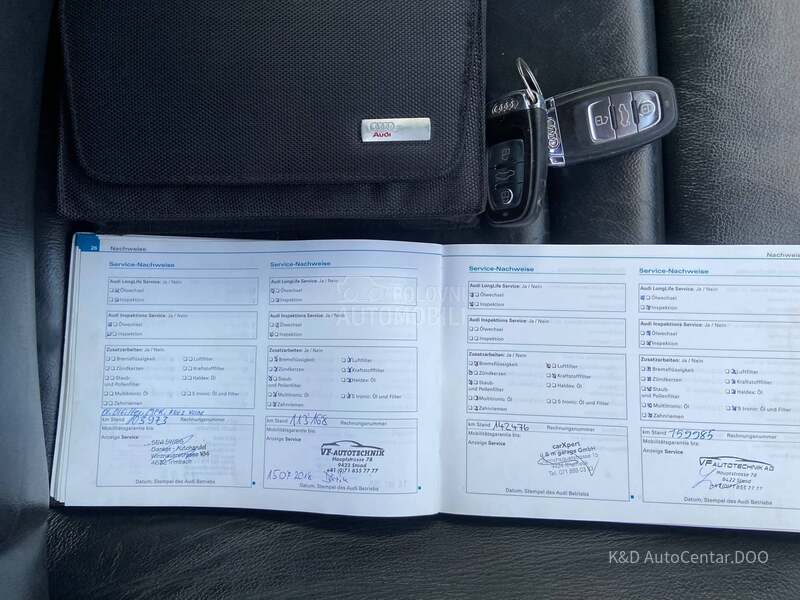 Audi
26 Nachweise
Nachweise
Service-Nachweise
Audi LongLife Service: Ja / Nein
Ölwechsel
Inspektion
Audi Inspektions Service: Ja / Nein
Ölwechsel
Inspektion
Zusatzarbeiten: Ja / Nein
Bremsflüssigkeit
Luftfilter
Zündkerzen
Kraftstofffilter
Staub-
und Pollenfilter
Haldex: Öl
Multitronic: Öl
S tronic: Öl und Filter
Zahnriemen
km Stand 103973
Rechnungsnummer
Mobilitätsgarantie bis:
Anzeige Service
4632 Trimbach
Datum, Stempel des Audi Betriebs
Service-Nachweise
Audi LongLife Service: Ja / Nein
Ölwechsel
Inspektion
Audi Inspektions Service: Ja / Nein
Ölwechsel
Inspektion
Zusatzarbeiten: Ja / Nein
Bremsflüssigkeit
Luftfilter
Zündkerzen
Kraftstofffilter
Staub-
und Pollenfilter
Haldex: Öl
Multitronic: Öl
S tronic: Öl und Filter
Zahnriemen
km Stand 119168
Rechnungsnummer
Mobilitätsgarantie bis:
Anzeige Service
VF-AUTOTECHNIK
Hauptstrasse 78
9422 Staad
+41 (0)71 855 77 77
Datum, Stempel des Audi Betriebs
Service-Nachweise
Audi LongLife Service: Ja / Nein
Ölwechsel
Inspektion
Audi Inspektions Service: Ja / Nein
Ölwechsel
Inspektion
Zusatzarbeiten: Ja / Nein
Bremsflüssigkeit
Luftfilter
Zündkerzen
Kraftstofffilter
Staub-
und Pollenfilter
Haldex: Öl
Multitronic: Öl
S tronic: Öl und Filter
Zahnriemen
km Stand 142476
Rechnungsnummer
Mobilitätsgarantie bis:
Anzeige Service
carXpert
garage GmbH
Datum, Stempel des Audi Betriebs
Service-Nachweise
Audi LongLife Service: Ja / Nein
Ölwechsel
Inspektion
Audi Inspektions Service: Ja / Nein
Ölwechsel
Inspektion
Zusatzarbeiten: Ja / Nein
Bremsflüssigkeit
Luftfilter
Zündkerzen
Kraftstofffilter
Staub-
und Pollenfilter
Haldex: Öl
Multitronic: Öl
S tronic: Öl und Filter
Zahnriemen
km Stand 159985
Rechnungsnummer
Mobilitätsgarantie bis:
Anzeige Service
VF AUTOTECHNIK AG
Hauptstrasse 78
9422 Staad
855 77 77
Datum, Stempel des Audi Betriebs
POLOVNI
AUTOMOBILI
K&D AutoCentar.DOO